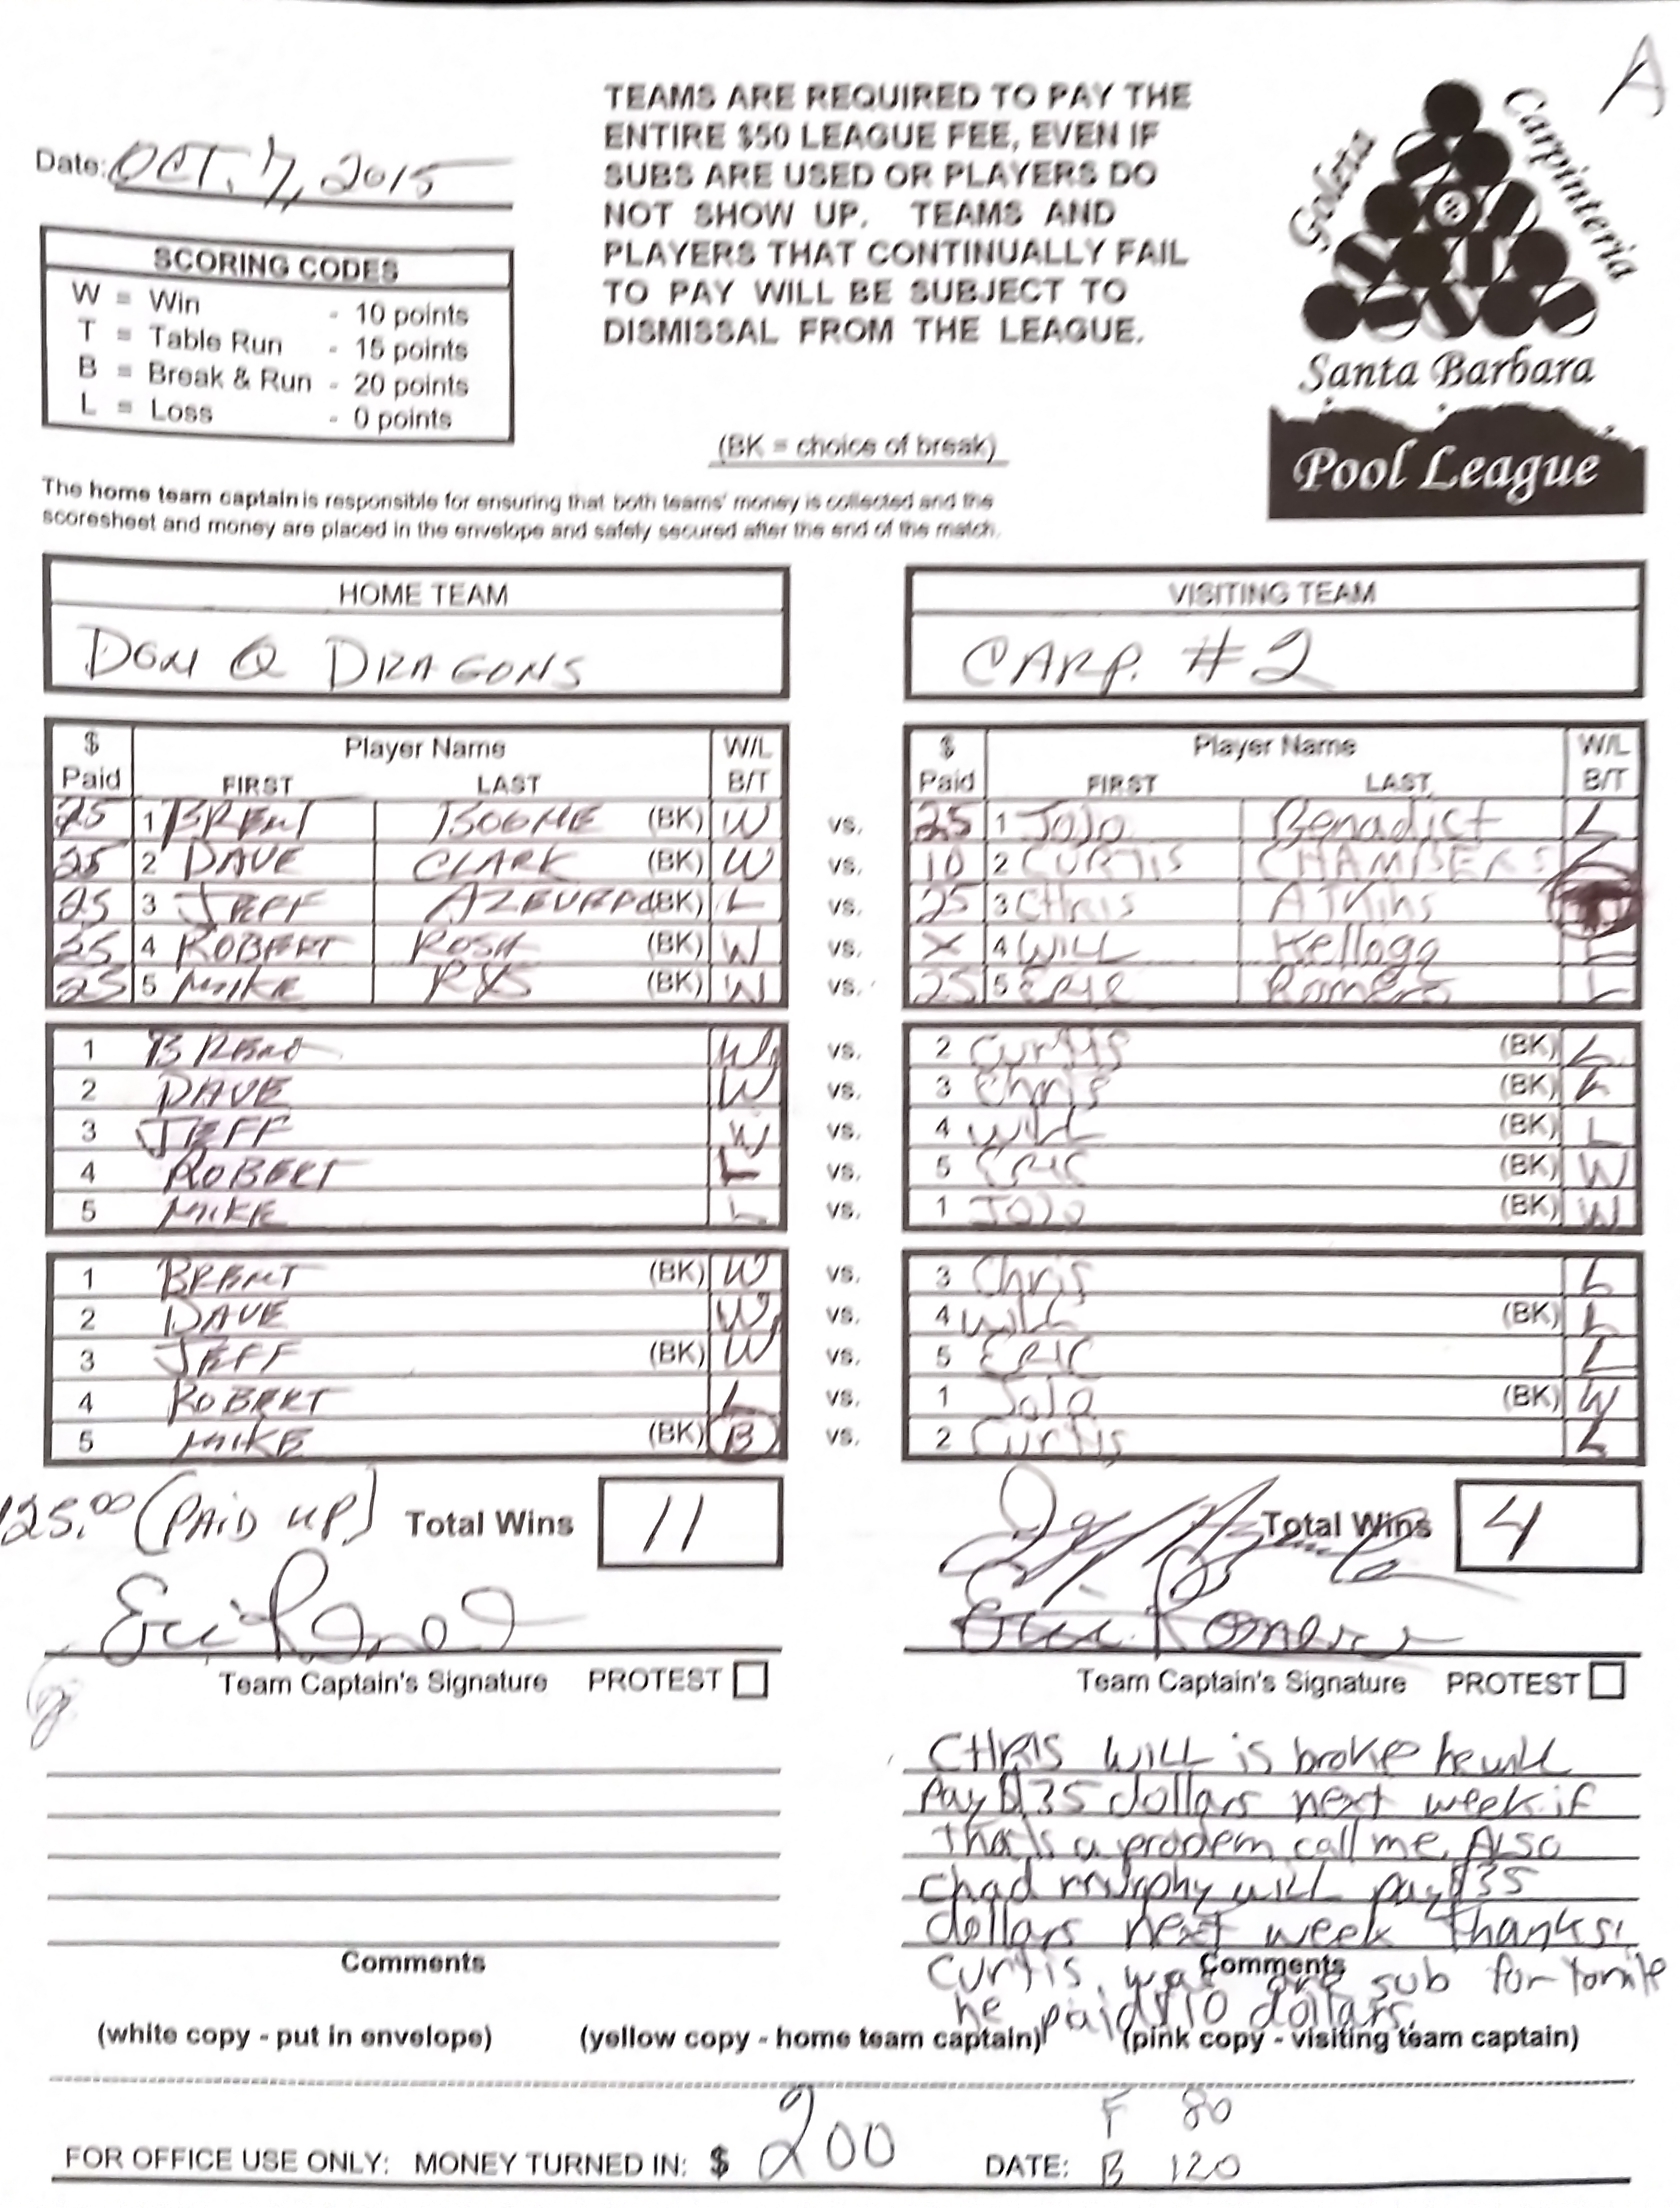 A
Date: OCT. 7, 2015
TEAMS ARE REQUIRED TO PAY THE
ENTIRE $50 LEAGUE FEE, EVEN IF
SUBS ARE USED OR PLAYERS DO
NOT SHOW UP. TEAMS AND
PLAYERS THAT CONTINUALLY FAIL
TO PAY WILL BE SUBJECT TO
DISMISSAL FROM THE LEAGUE.
Goleta
Carpinteria
Santa Barbara
Pool League
SCORING CODES
W = Win - 10 points
T = Table Run - 15 points
B = Break & Run - 20 points
L = Loss - 0 points
(BK = choice of break)
The home team captain is responsible for ensuring that both teams' money is collected and the
scoresheet and money are placed in the envelope and safely secured after the end of the match.
HOME TEAM VISITING TEAM
DON Q DRAGONS CARP. #2
$ Paid Player Name FIRST LAST W/L B/T $ Paid Player Name FIRST LAST W/L B/T
25 1 BRENT BOONE (BK) W vs. 25 1 JoJo Benadict L
25 2 DAVE CLARK (BK) W vs. 10 2 CURTIS CHAMBERS L
25 3 JEFF (BK) L vs. 25 3 CHris ATKins
25 4 ROBERT ROSH (BK) W vs. X 4 WILL Kellogg L
25 5 MIKE (BK) W vs. 25 5 ERIC Romero L
1 BRENT W vs. 2 Curtis (BK) L
2 DAVE W vs. 3 Chris (BK) L
3 JEFF W vs. 4 WILL (BK) L
4 ROBERT L vs. 5 ERIC (BK) W
5 MIKE L vs. 1 JOJO (BK) W
1 BRENT (BK) W vs. 3 Chris L
2 DAVE W vs. 4 WILL (BK) L
3 JEFF (BK) W vs. 5 ERIC L
4 ROBERT L vs. 1 JoJo (BK) W
5 MIKE (BK) B vs. 2 Curtis L
125.00 (PAID UP) Total Wins 11 Total Wins 4
Eric Romero
Team Captain's Signature PROTEST Team Captain's Signature PROTEST
CHRIS WILL is broke he will
Pay $35 dollars next week if
Thats a prodem call me. ALSO
Chad murphy will pay $35
dollars next week Thanks!
Comments Comments
Curtis was sub for tonite
he paid $10 dollars.
(white copy - put in envelope) (yellow copy - home team captain) (pink copy - visiting team captain)
F 80
FOR OFFICE USE ONLY: MONEY TURNED IN: $ 200 DATE: B 120